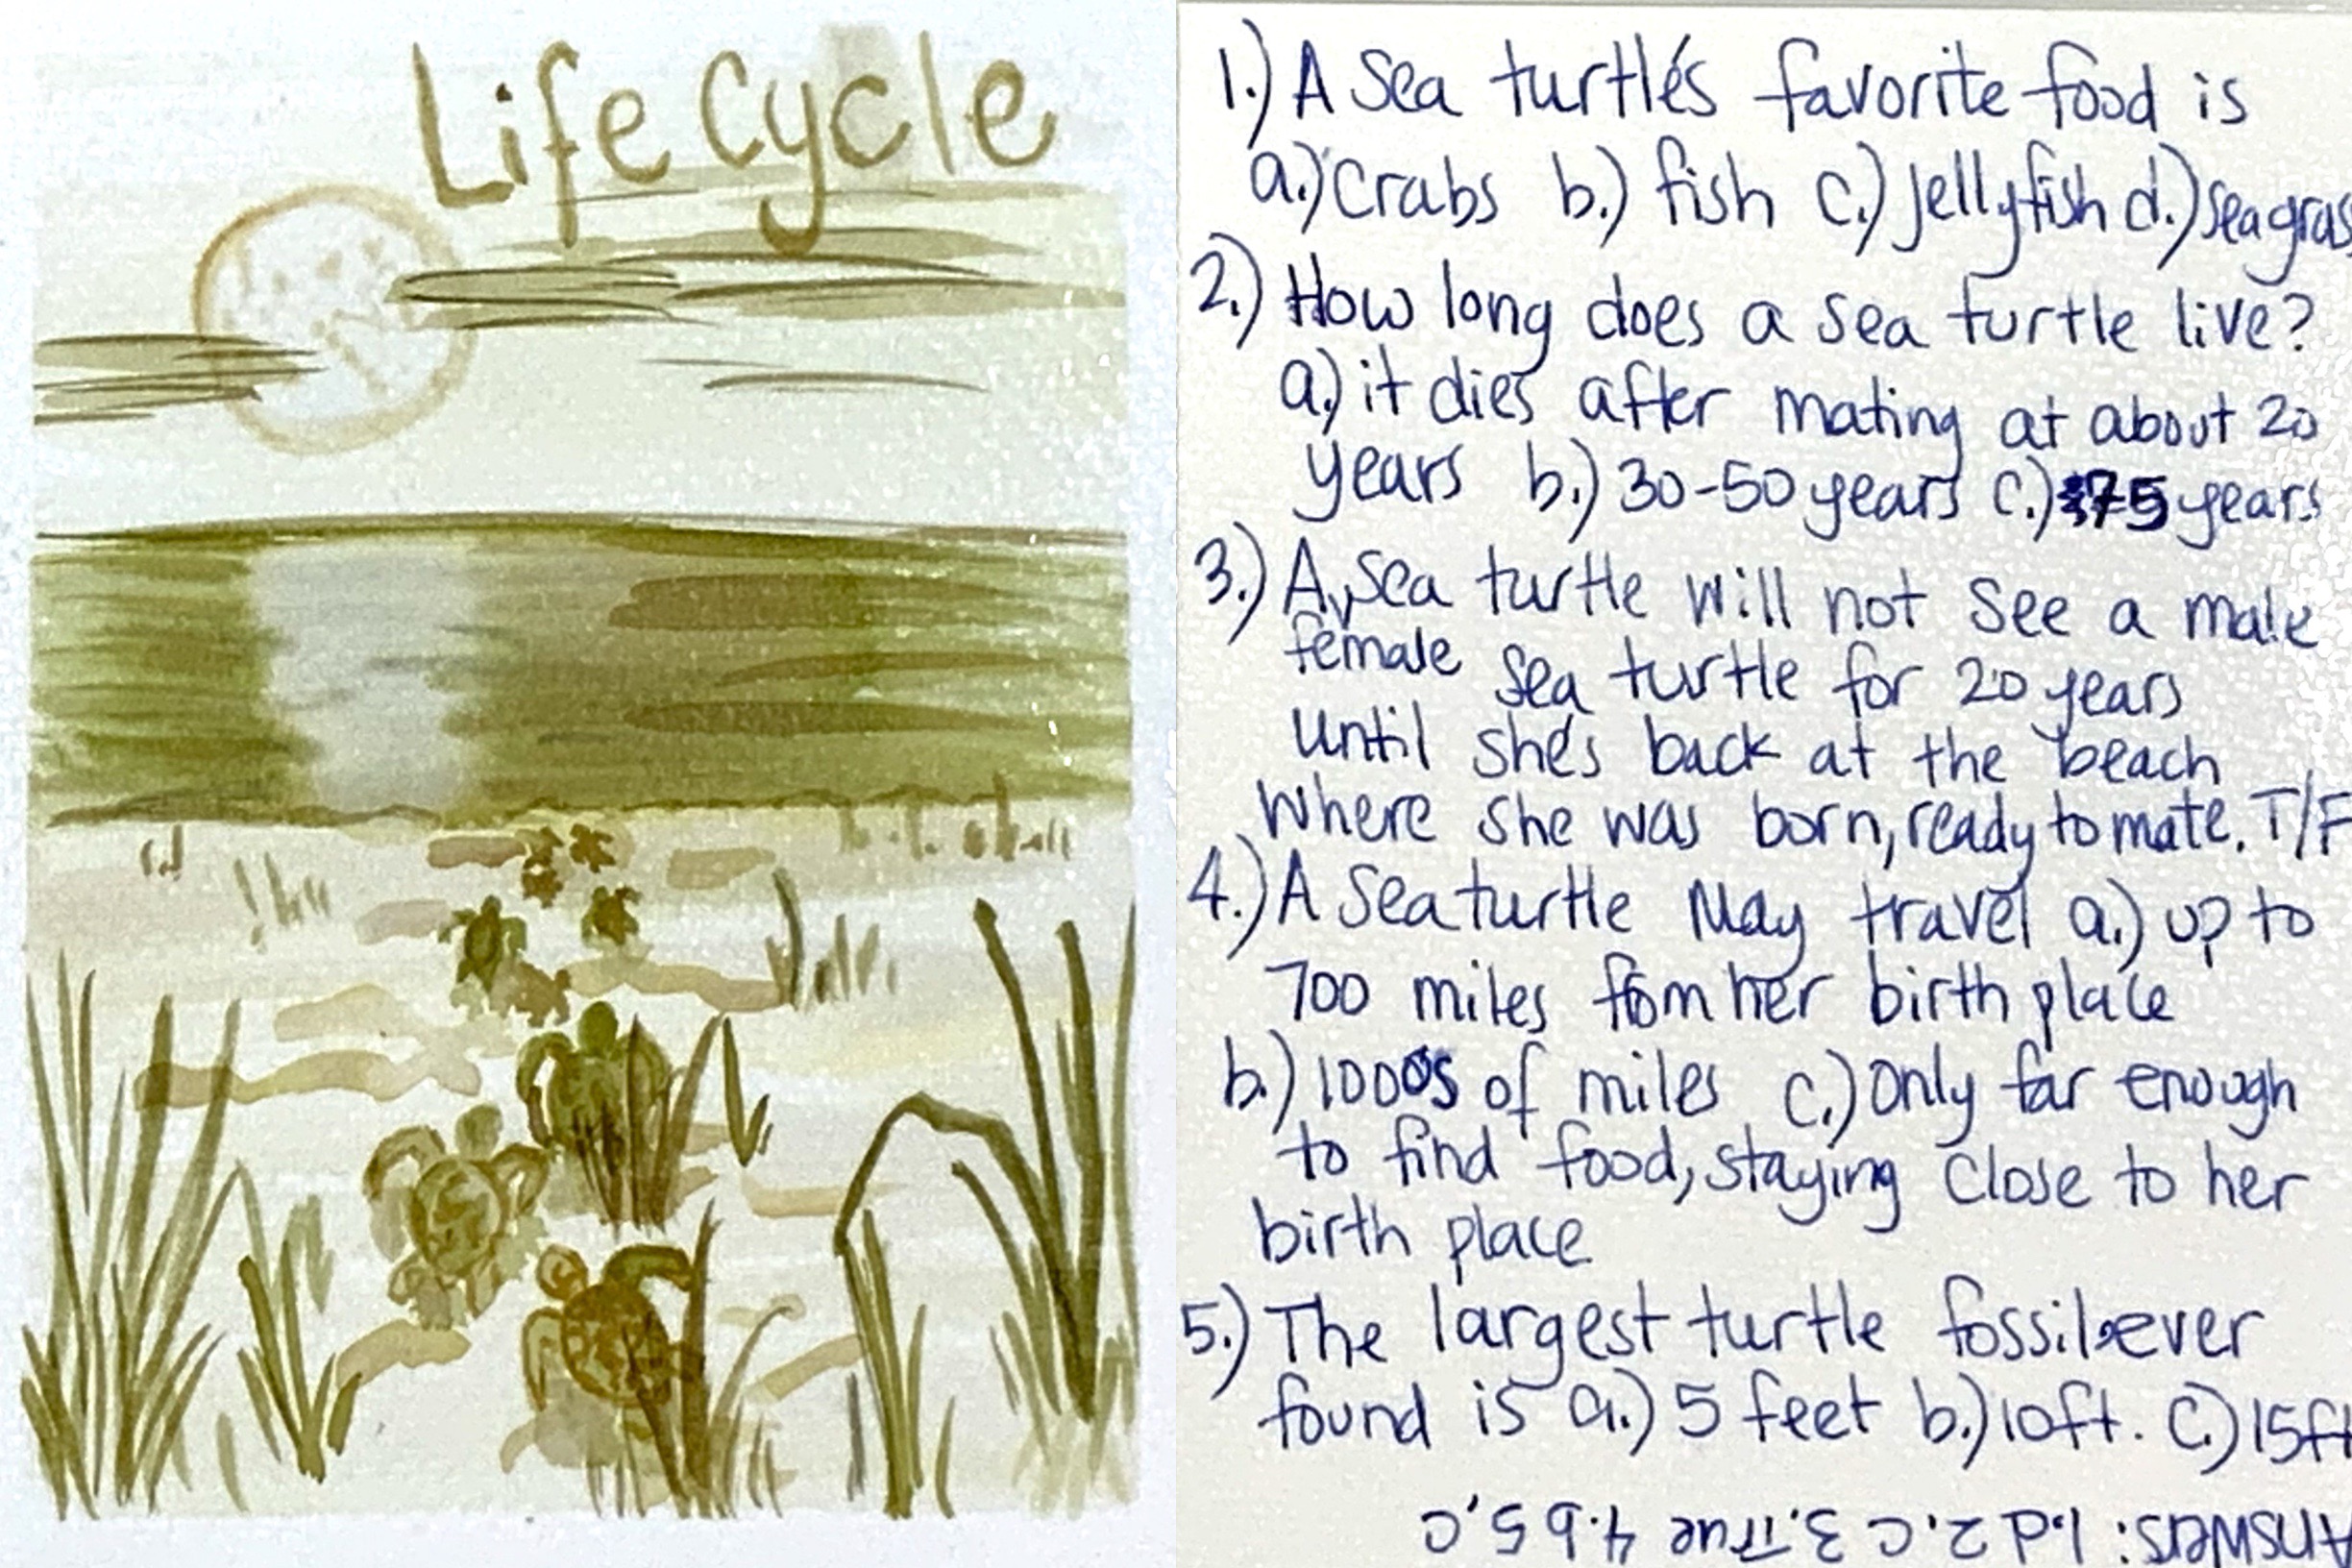 Life Cycle
1.) A Sea turtle's favorite food is
a.) Crabs b.) fish c.) jellyfish d.) seagras
2.) How long does a sea turtle live?
a.) it dies after mating at about 20
years b.) 30-50 years c.) 75 years
3.) A sea turtle will not see a male
female sea turtle for 20 years
until she's back at the beach
where she was born, ready to mate. T/F
4.) A Sea turtle May travel a.) up to
700 miles from her birth place
b.) 1000s of miles c.) Only far enough
to find food, staying close to her
birth place
5.) The largest turtle fossil ever
found is a.) 5 feet b.) 10ft. c.) 15ft
Answers: 1.d 2.c 3.True 4.b 5.c